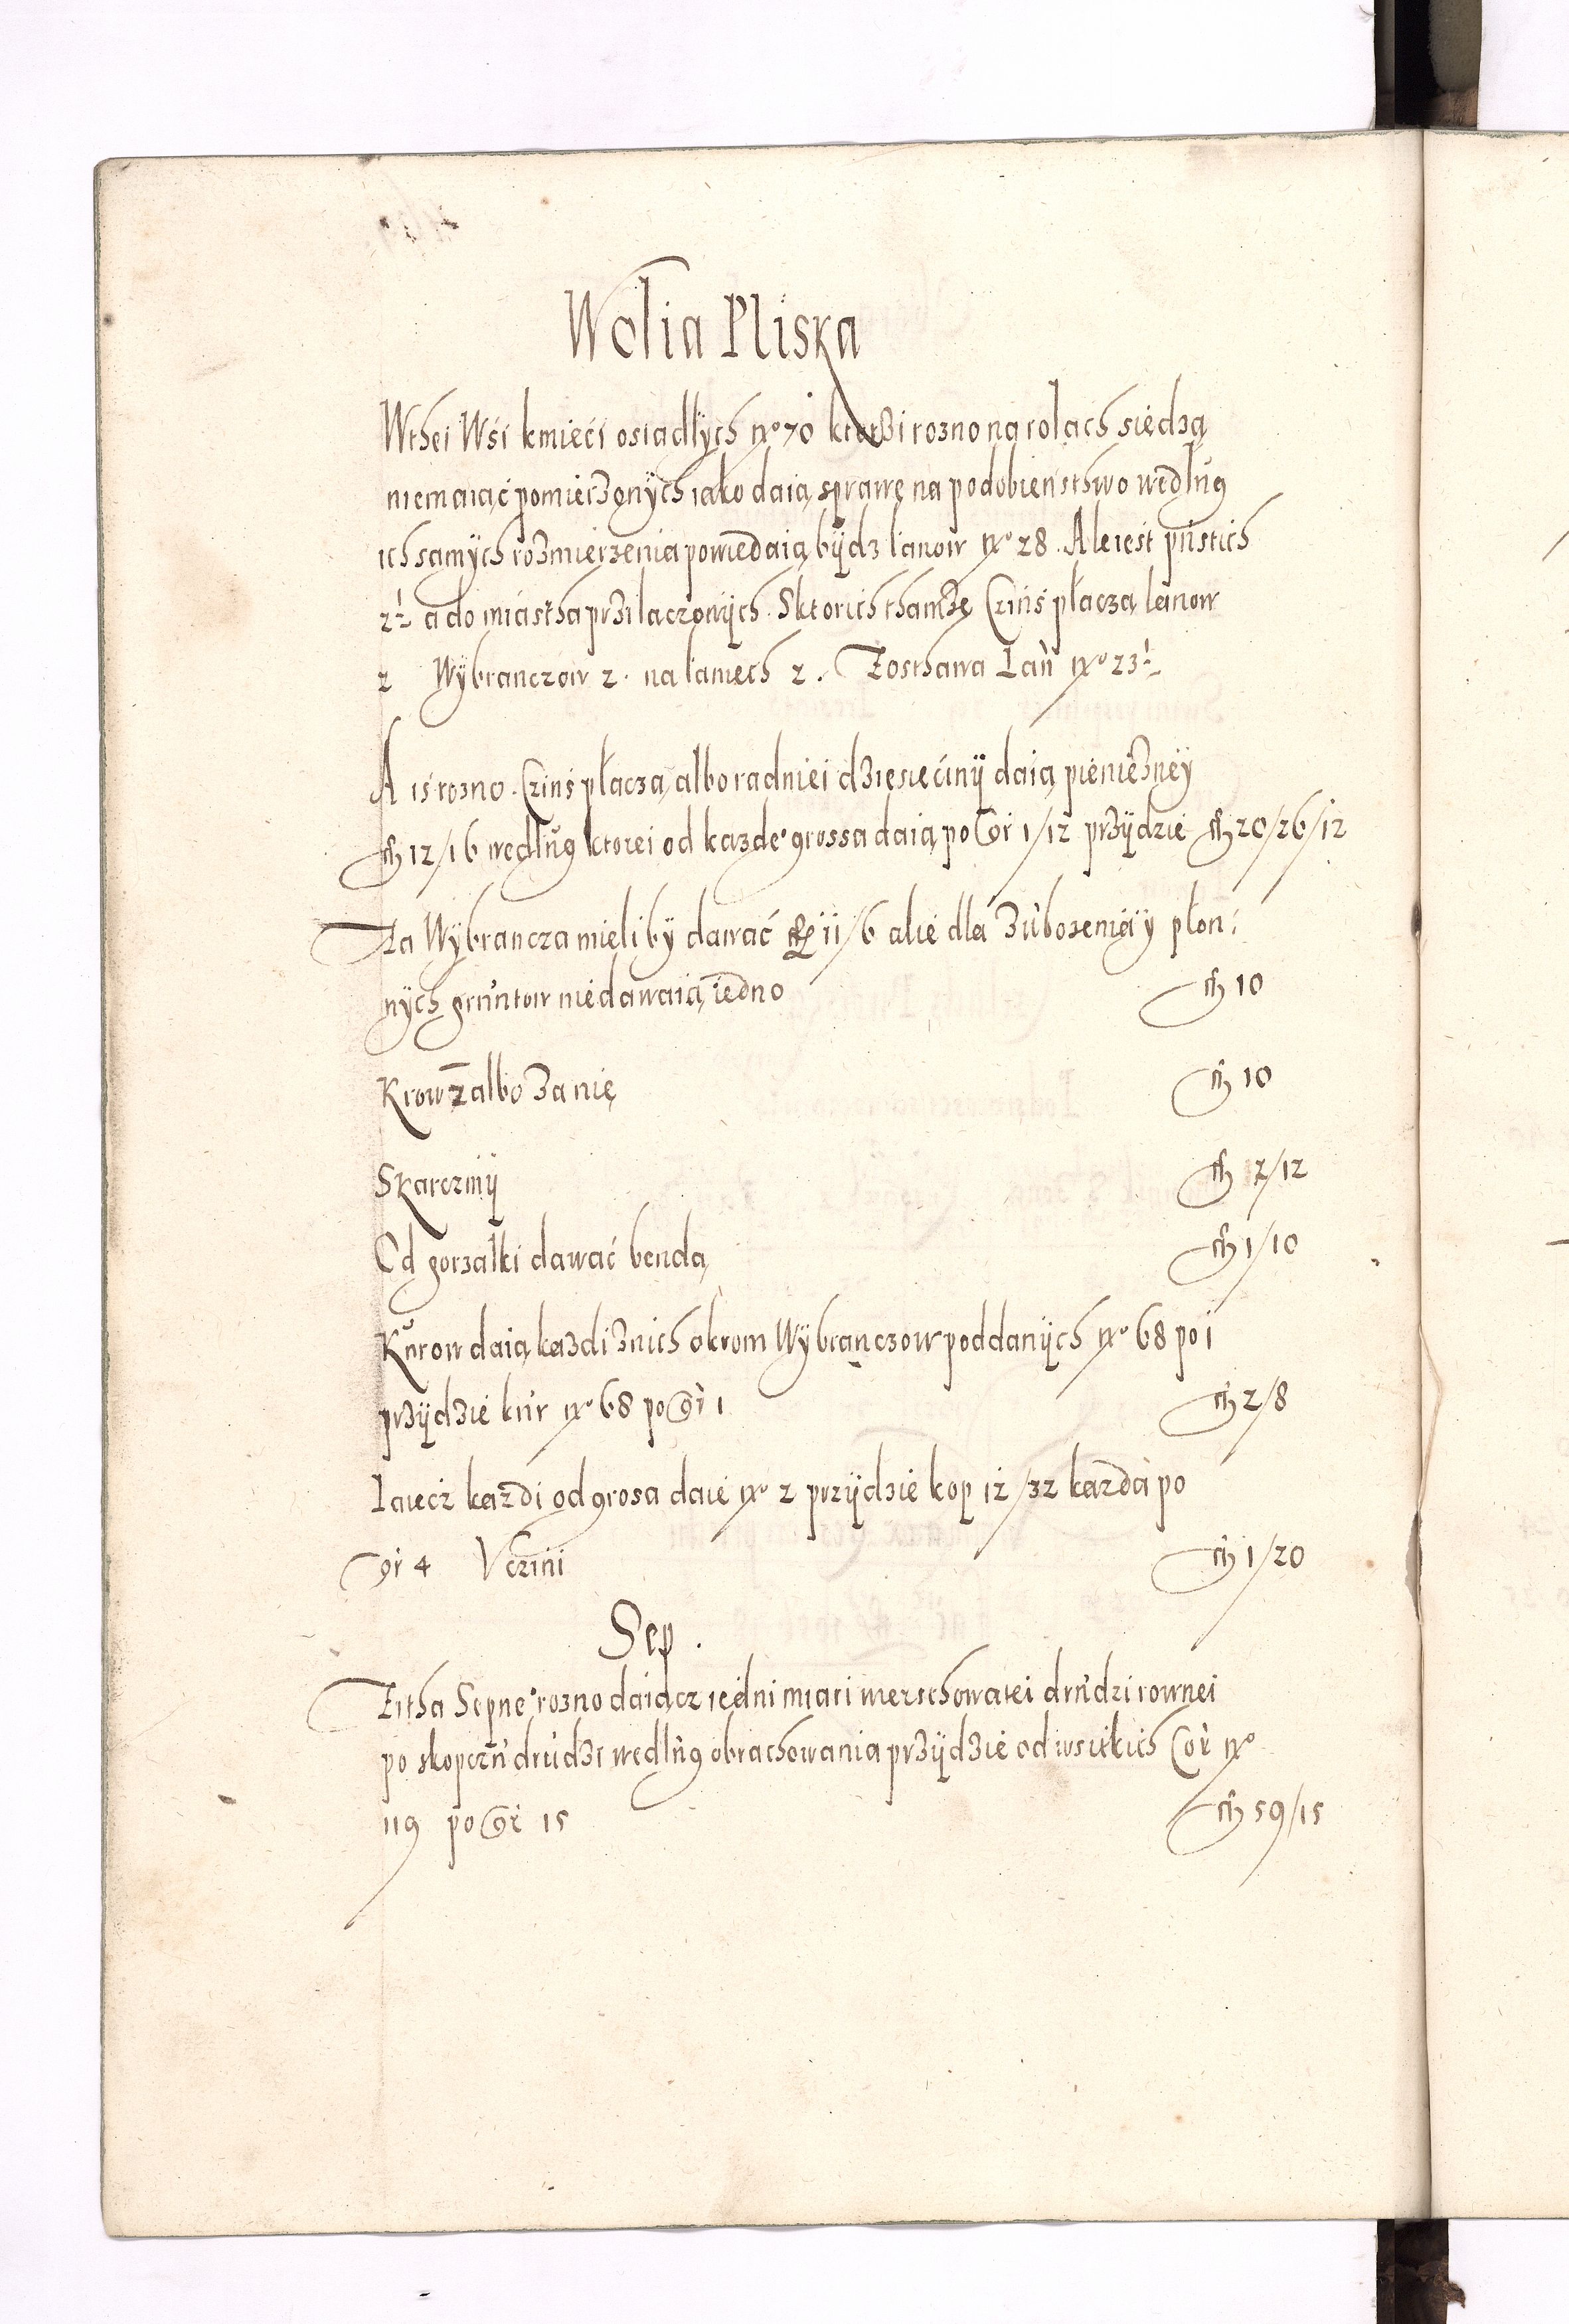 Wolia Pliska
Wthei Wśi kmieći osiadłych nro 70 ktorzi rozno na rolach siedzą
niemaiąć pomierzonÿch iako daią sprawę na podobieństhwo według
ich samÿch rozmierzenia powiedaią bÿdz łanow nro 28. Ale iest pustich
2½ a do miastha przilaczonÿch. Sktorich thamże Czinś płaczą łanow
2 Wÿbranczow 2. na łaniech 2. Zosthawa Łan nro 23½
A iś rozno. Czinś płaczą, albo radniei dziesiećinÿ daią pieniężneÿ
fl 12/16 według ktorei od kazdeo grossa daią po gr 1/12 przÿdzie fl 20/26/12
Za Wÿbrancza mieli bÿ dawać fl 11/6 alie dla zubozenia ÿ płon:
nÿch gruntow nie dawaią iedno fl 10
Krow 2 albo za nię fl 10
Skarczmÿ fl 12/12
Od gorzałki dawać bendą fl 1/10
Kurow daią kazdi znich okrom Wÿbranczow poddanÿch nro 68 po 1
przÿdzie kur nro 68 po gr 1 fl 2/8
Iaiecz kazdi od grosa daie nro 2 przÿdzie kop 12/32 kazda po
gr 4 Vczini fl 1/20
Sep.
Zitha Sepneo rozno daiącz iedni miari wierzchowatei drudzi rownei
po skopczu drudzi według obrachowania przÿdzie od wsitkich Cor nro
119 po gr 15 fl 59/15